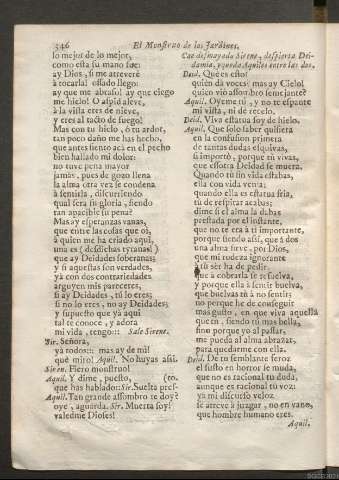 346 El Monstruo de los Jardines.
lo mejor de lo mejor,
como esta su mano fue:
ay Dios, si me atreverè
à tocarla! ossado llego:
ay que me abraso! ay que ciego
me hielo! O aspid aleve,
à la vista eres de nieve,
y eres al tacto de fuego!
Mas con tu hielo, ò tu ardor,
tan poco daño me has hecho,
que antes siento acà en el pecho
bien hallado mi dolor:
no tuve pena mayor
jamàs, pues de gozo llena
la alma otra vez se condena
à sentirla, discurriendo
qual serà su gloria, siendo
tan apacible su pena?
Mas ay esperanzas vanas,
que entre las cosas que oì,
à quien me ha criado aqui,
una es (desdichas tyranas!)
que ay Deidades soberanas:
y si aquestas son verdades,
yà con dos contrariedades
arguyen mis pareceres,
si ay Deidades, tu lo eres;
si no lo eres, no ay Deidades;
y supuesto que yà aqui
tal te conoce, y adora
mi vida, tengo::: Sale Sirene.
Sir. Señora,
ya todos::: mas ay de mi!
què miro! Aquil. No huyas assi.
Siren. Fiero monstruo!
Aquil. Y dime, puesto, (to.
que has hablado::: Sir. Suelta pres-
Aquil. Tan grande assombro te doy?
oye, aguarda. Sir. Muerta soy!
valedme Dioses!
Cae desmayada Sirene, despierta Dei-
damia, y quedo Aquiles entre las dos.
Deid. Què es esto?
quièn dà voces? mas ay Cielo!
quièn viò assombro semejante?
Aquil. Oyeme tu, y no te espante
mi vista, ni dè recelo.
Deid. Viva estatua soy de hielo.
Aquil. Que solo saber quisiera
en la confusion primera
de tantas dudas esquivas,
si importò, porque tu vivas,
que essotra Deidad se muera.
Quando tu sin vida estabas,
ella con vida venia;
quando ella es estatua fria,
tu de respirar acabas;
dime si el alma la dabas
prestada por el instante,
que no te era à tì importante,
porque siendo assi, que à dos
una alma sirve, por Dios,
que mi rudeza ignorante
à tu sèr ha de pedir,
que à cobrarla se resuelva,
y porque ella à sentir buelva,
que buelvas tu à no sentir:
no porque he de conseguir
mas gusto, en que viva aquella
que tu, siendo tu mas bella,
sino porque yo al passar,
me pueda al alma abrazar,
para quedarme con ella.
Deid. De tu semblante feroz
el susto en horror se muda,
que no es racional tu duda,
aunque es racional tu voz:
ya mi discurso veloz
se atreve à juzgar, no en vano,
que hombre humano eres.
Aquil.